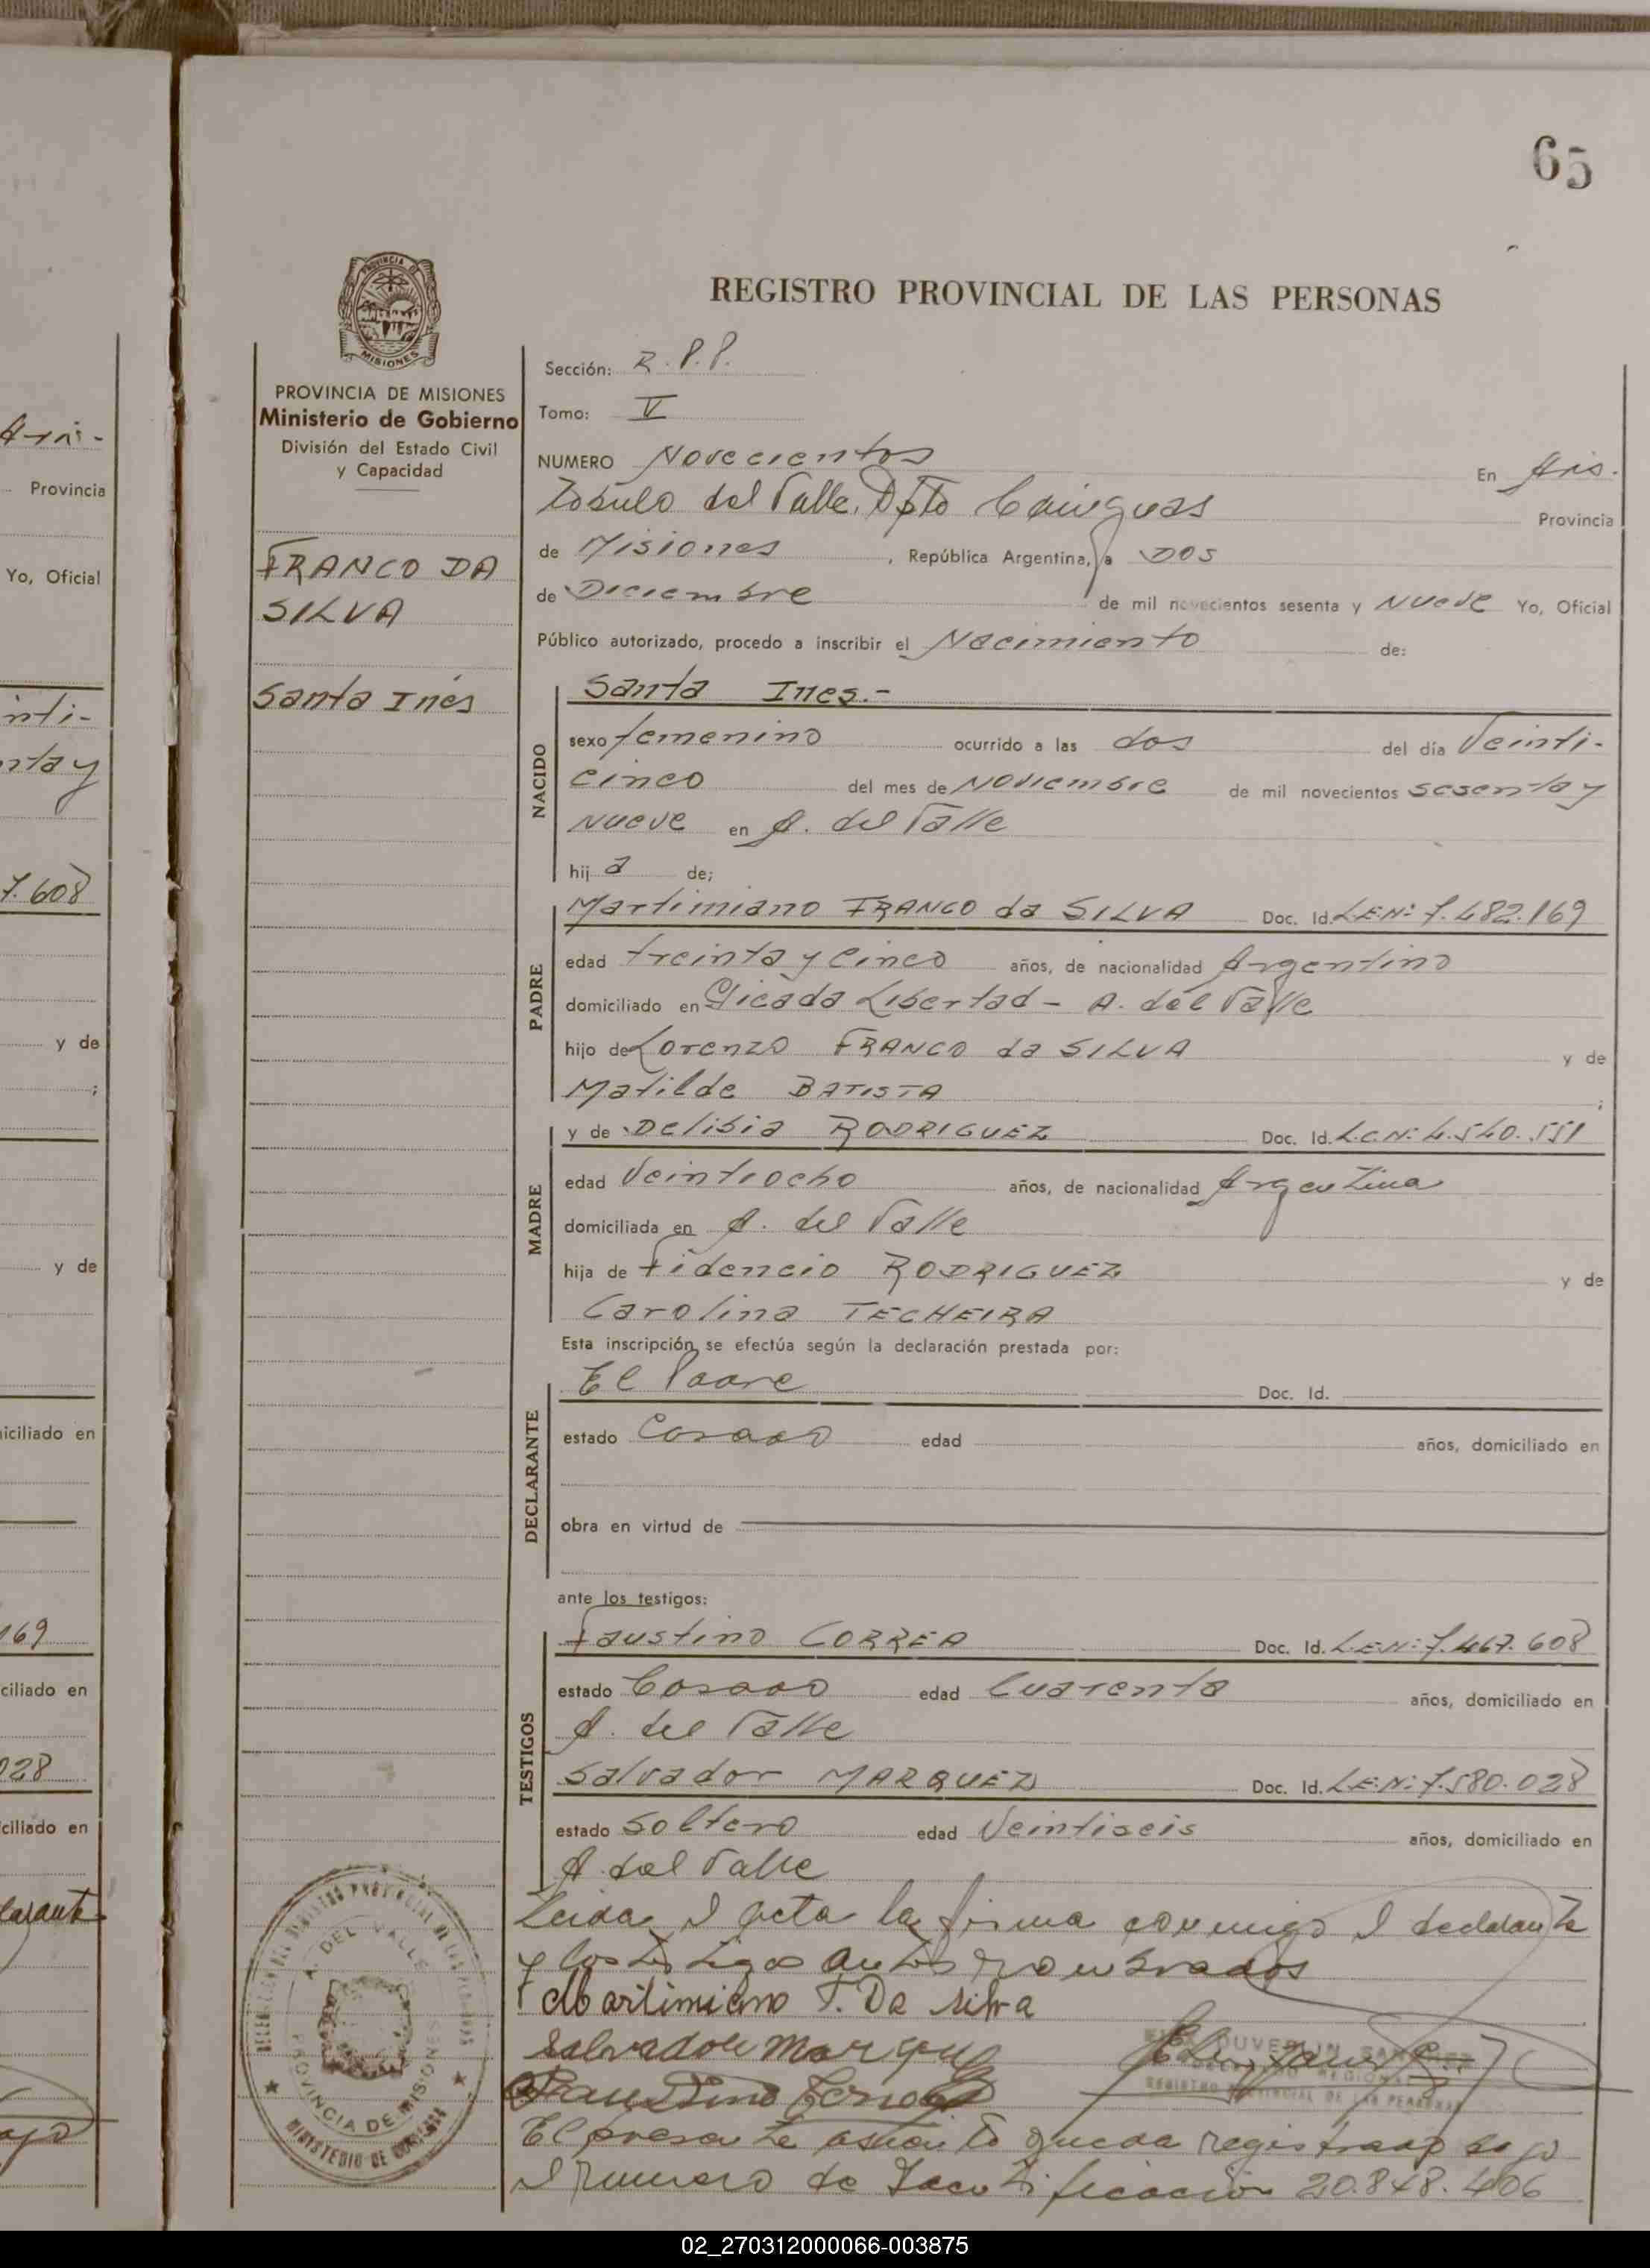 65
REGISTRO PROVINCIAL DE LAS PERSONAS
PROVINCIA DE
MISIONES
PROVINCIA DE MISIONES
Ministerio de Gobierno
División del Estado Civil
y Capacidad
FRANCO DA
SILVA
Santa Inés
Sección: R.P.P.
Tomo: V
NUMERO Novecientos En Aris-
tobulo del Valle, Dpto Cainguas Provincia
de Misiones, República Argentina, a DOS
de Diciembre de mil novecientos sesenta y NUEVE Yo, Oficial
Público autorizado, procedo a inscribir el Nacimiento de:
NACIDO
Santa Ines.-
sexo femenino ocurrido a las dos del día Veinti-
cinco del mes de Noviembre de mil novecientos sesenta y
NUEVE en A. del Valle
hija de;
PADRE
Martimiano FRANCO da SILVA Doc. Id. L.E.Nº 7.482.169
edad treinta y cinco años, de nacionalidad Argentino
domiciliado en Picada Libertad - A. del Valle
hijo de Lorenzo FRANCO da SILVA y de
Matilde BATISTA ;
MADRE
y de Delibia RODRIGUEZ Doc. Id. L.C.Nº 4.540.551
edad Veintiocho años, de nacionalidad Argentina
domiciliada en A. del Valle
hija de Fidencio RODRIGUEZ y de
Carolina TECHEIRA
Esta inscripción se efectúa según la declaración prestada por:
DECLARANTE
El Padre Doc. Id.
estado Casado edad años, domiciliado en
obra en virtud de
ante los testigos:
TESTIGOS
Faustino CORREA Doc. Id. L.E.Nº 7.467.608
estado Casado edad Cuarenta años, domiciliado en
A. del Valle
Salvador MARQUEZ Doc. Id. L.E.Nº 7.580.028
estado Soltero edad Veintiseis años, domiciliado en
A. del Valle
Leida el acta la firma conmigo el declarante
y los testigos antes nombrados
Martimiano F. Da silva
Salvador Marquez
Faustino Correa
REGISTRO PROVINCIAL DE LAS PERSONAS
El presente asiento queda registrado bajo
el numero de Identificacion 20.848.406
A. DEL VALLE
PROVINCIA DE MISIONES
MINISTERIO DE GOBIERNO
Aris-
Provincia
Yo, Oficial
inti-
nta y
7.608
y de
;
y de
iciliado en
169
ciliado en
028
ciliado en
larante
02_270312000066-003875